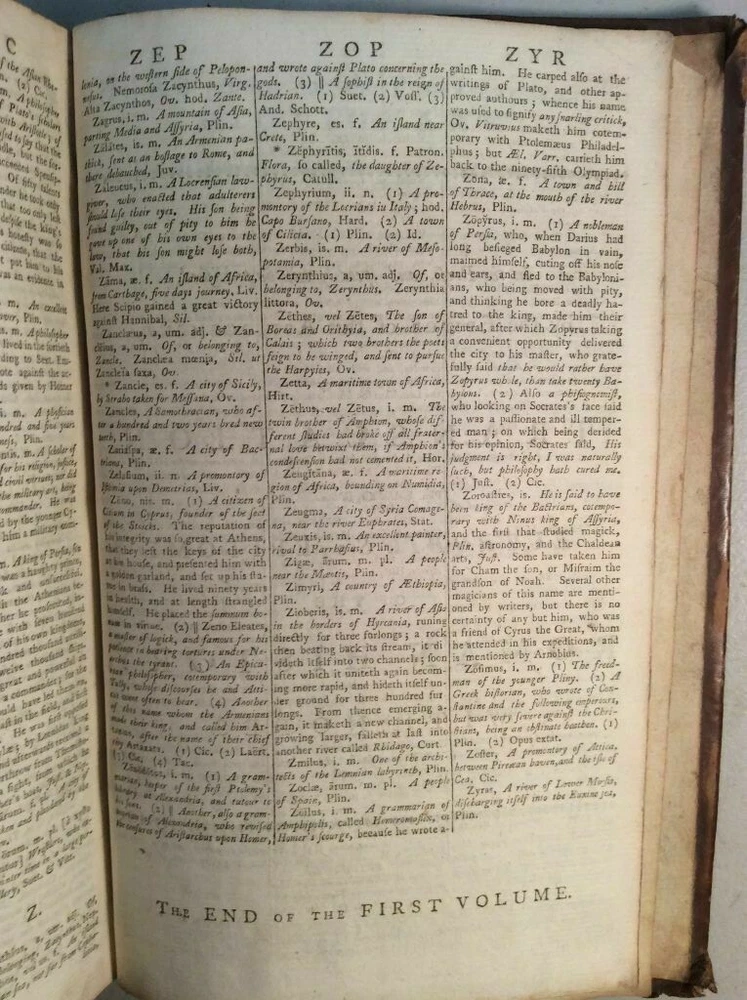 ZEP
ZOP
ZYR
on the western side of Pelopon-
Nemorosa Zacynthus, Virg.
Alta Zacynthos, Ov. hod. Zante.
Zagrus, i. m. A mountain of Asia,
parting Media and Assyria, Plin.
Zălătes, is. m. An Armenian pa-
thick, sent as an hostage to Rome, and
there debauched, Juv.
Zaleucus, i. m. A Locrensian law-
giver, who enacted that adulterers
should lose their eyes. His son being
found guilty, out of pity to him he
gave up one of his own eyes to the
law, that his son might lose both,
Val. Max.
Zăma, æ. f. An island of Africa,
from Carthage, five days journey, Liv.
Here Scipio gained a great victory
against Hannibal, Sil.
Zanclæus, a, um. adj. & Zan-
clēius, a, um. Of, or belonging to,
Zancle. Zanclæa mœnia, Sil. ut
Zancleïa saxa, Ov.
* Zancle, es. f. A city of Sicily,
by Strabo taken for Messana, Ov.
Zancles, A Samothracian, who af-
ter a hundred and two years bred new
teeth, Plin.
Zariaspa, æ. f. A city of Bac-
trians, Plin.
Zelasium, ii. n. A promontory of
upon Demetrias, Liv.
Zeno, nis. m. (1) A citizen of
Citium in Cyprus, founder of the sect
of the Stoicks. The reputation of
his integrity was so great at Athens,
that they left the keys of the city
at his house, and presented him with
a golden garland, and set up his sta-
tue in brass. He lived ninety years
in health, and at length strangled
himself. He placed the summum bo-
num in virtue. (2) || Zeno Eleates,
a master of logick, and famous for his
patience in bearing tortures under Ne-
arches the tyrant. (3) An Epicu-
rean philosopher, cotemporary with
Tully, whose discourses he and Atti-
cus came often to hear. (4) Another
of this name whom the Armenians
made their king, and called him Ar-
taxias, after the name of their chief
city Artaxata. (1) Cic. (2) Laërt.
(3) Cic. (4) Tac.
Zenodotus, i. m. (1) A gram-
marian, keeper of the first Ptolemy's
library at Alexandria, and tutour to
his sons. (2) || Another, also a gram-
marian of Alexandria, who revised
the censures of Aristarchus upon Homer,
and wrote against Plato concerning the
gods. (3) || A sophist in the reign of
Hadrian. (1) Suet. (2) Voss. (3)
And. Schott.
Zephyre, es. f. An island near
Crete, Plin.
* Zĕphyrītis, ĭtĭdis. f. Patron.
Flora, so called, the daughter of Ze-
phyrus, Catull.
Zephyrium, ii. n. (1) A pro-
montory of the Locrians in Italy; hod.
Capo Bursano, Hard. (2) A town
of Cilicia. (1) Plin. (2) Id.
Zerbis, is. m. A river of Meso-
potamia, Plin.
Zerynthius, a, um. adj. Of, or
belonging to, Zerynthus. Zerynthia
littora, Ov.
Zēthes, vel Zētes, The son of
Boreas and Orithyia, and brother of
Calais; which two brothers the poets
feign to be winged, and sent to pursue
the Harpyies, Ov.
Zetta, A maritime town of Africa,
Hirt.
Zēthus, vel Zētus, i. m. The
twin brother of Amphion, whose dif-
ferent studies had broke off all frater-
nal love betwixt them, if Amphion's
condescension had not cemented it, Hor.
Zeugitāna, æ. f. A maritime re-
gion of Africa, bounding on Numidia,
Plin.
Zeugma, A city of Syria Comage-
na, near the river Euphrates, Stat.
Zeuxis, is. m. An excellent painter,
rival to Parrhasius, Plin.
Zigæ, ārum. m. pl. A people
near the Mæotis, Plin.
Zimyri, A country of Æthiopia,
Plin.
Zioberis, is. m. A river of Asia
in the borders of Hyrcania, runing
directly for three forlongs; a rock
then beating back its stream, it di-
videth itself into two channels; soon
after which it uniteth again becom-
ing more rapid, and hideth itself un-
der ground for three hundred fur-
longs. From thence emerging a-
gain, it maketh a new channel, and
growing larger, falleth at last into
another river called Rhidago, Curt.
Zmilus, i. m. One of the archi-
tects of the Lemnian labyrinth, Plin.
Zoelæ, ārum. m. pl. A people
of Spain, Plin.
Zoilus, i. m. A grammarian of
Amphipolis, called Homeromastix, or
Homer's scourge, because he wrote a-
gainst him. He carped also at the
writings of Plato, and other ap-
proved authours; whence his name
was used to signify any snarling critick,
Ov. Vitruvius maketh him cotem-
porary with Ptolemæus Philadel-
phus; but Æl. Varr. carrieth him
back to the ninety-fifth Olympiad.
Zōna, æ. f. A town and hill
of Thrace, at the mouth of the river
Hebrus, Plin.
Zōpȳrus, i. m. (1) A nobleman
of Persia, who, when Darius had
long besieged Babylon in vain,
maimed himself, cuting off his nose
and ears, and fled to the Babyloni-
ans, who being moved with pity,
and thinking he bore a deadly ha-
tred to the king, made him their
general, after which Zopyrus taking
a convenient opportunity delivered
the city to his master, who grate-
fully said that he would rather have
Zopyrus whole, than take twenty Ba-
bylons. (2) Also a phisiognomist,
who looking on Socrates's face said
he was a passionate and ill temper-
ed man; on which being derided
for his opinion, Socrates said, His
judgment is right, I was naturally
such, but philosophy hath cured me.
(1) Just. (2) Cic.
Zoroastres, is. He is said to have
been king of the Bactrians, cotempo-
rary with Ninus king of Assyria,
and the first that studied magick,
Plin. astronomy, and the Chaldean
arts, Just. Some have taken him
for Cham the son, or Misraim the
grandson of Noah. Several other
magicians of this name are menti-
oned by writers, but there is no
certainty of any but him, who was
a friend of Cyrus the Great, whom
he attended in his expeditions, and
is mentioned by Arnobius.
Zōsimus, i. m. (1) The freed-
man of the younger Pliny. (2) A
Greek historian, who wrote of Con-
stantine and the following emperours,
but was very severe against the Chri-
stians, being an obstinate heathen. (1)
Plin. (2) Opus extat.
Zoster, A promontory of Attica,
between Piræan haven, and the isle of
Cea, Cic.
Zyras, A river of Lower Mœsia,
discharging itself into the Euxine sea,
Plin.
THE END OF THE FIRST VOLUME.